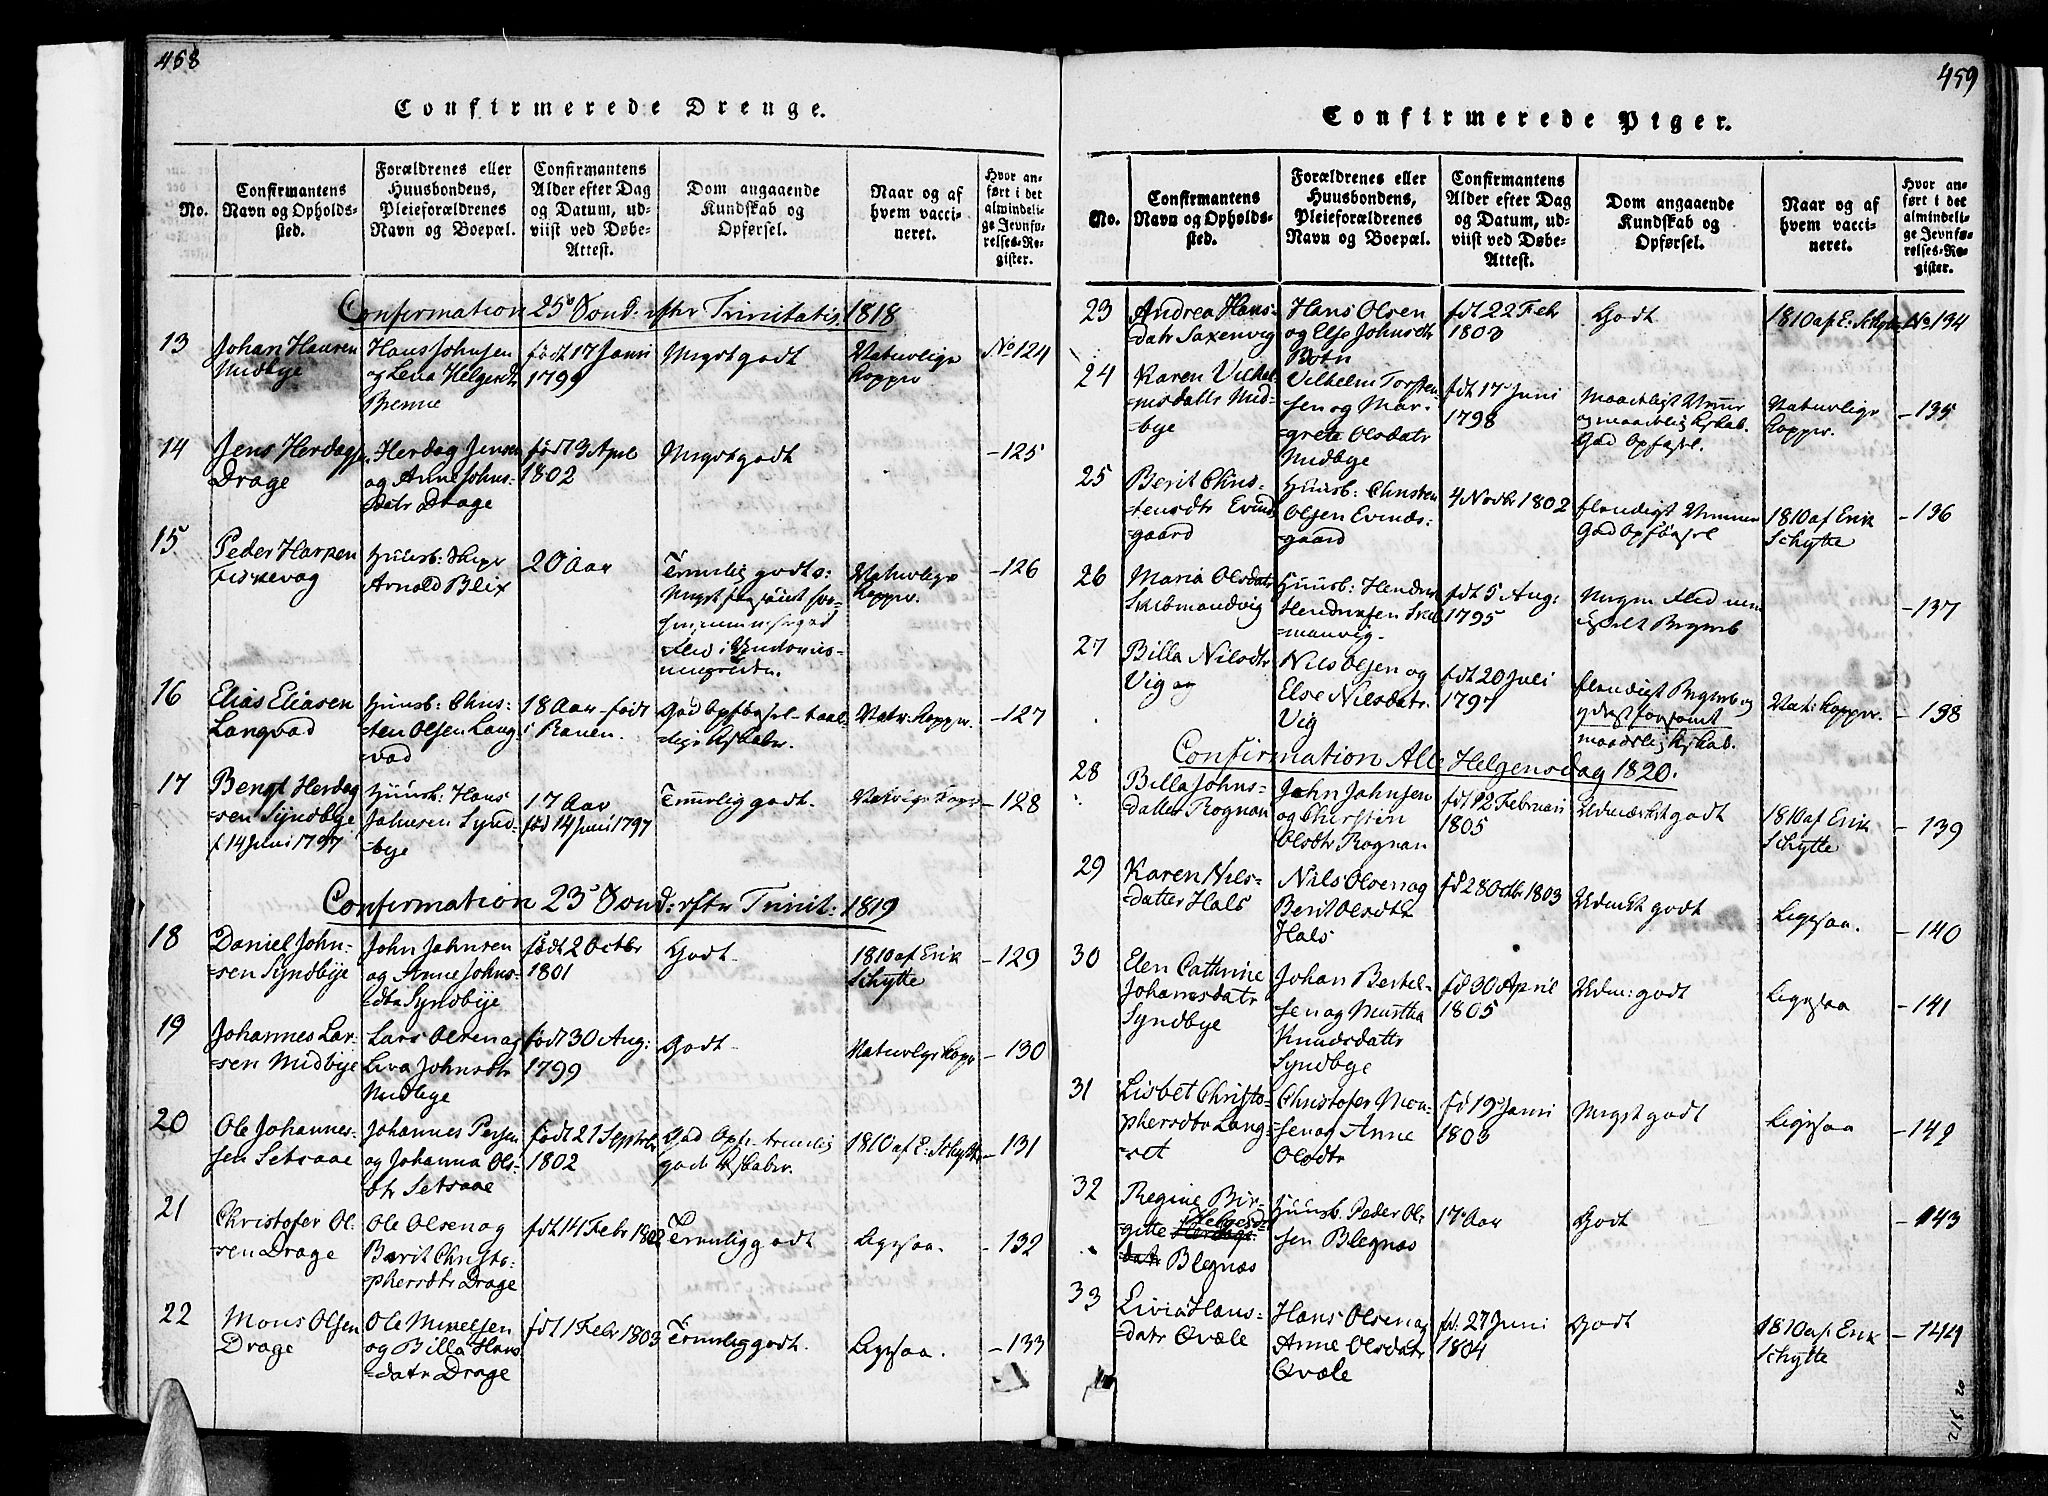 458
Confirmerede Drenge.
No.
Confirmantens
Navn og Opholds-
sted.
Forældrenes eller
Huusbondens,
Pleieforældrenes
Navn og Boepæl.
Confirmantens
Alder efter Dag
og Datum, ud-
viist ved Døbe-
Attest.
Dom angaaende
Kundskab og
Opførsel.
Naar og af
hvem vacci-
neret.
Hvor an-
ført i det
almindeli-
ge Jevnfø-
relses-Re-
gister.
Confirmation 25 Sond: efter Trinitatis 1818
13
Johan Hansen
Midbye
Hans Johnsen
og Lena Helgesdtr
Brenne
født 17 Janri
1799
Megetgodt
Naturlige
Kopper
No 124
14
Jens Herdagsen
Drage
Herdag Jensen
og Anne Johns-
datr Drage
født 3 Apr
1802
Megetgodt
-125
15
Peder Harsen
Fiskevag
Huusb: Skipr
Arnold Blix
20 Aar
Temelig godt:
Naturlige
Kopper.
-126
16
Elias Eliasen
Langvad
Huusb: Chris-
ten Olsen Lang
vad
18 Aar - født
i Ranen.
God Opførsel - taal-
elige Kskaber.
Natr: Kopper.
-127
17
Bengt Herdag
sen Syndbye
f 14 Juni 1797
Huusb: Hans
Johnsen Synd-
bye
17 Aar
fød 14 Juni 1797
Temelig godt.
Natrlige Kopr
-128
Confirmation 23 Sond: efter Trinit: 1819
18
Daniel John-
sen Syndbye
John Johnsen
og Anne Johns-
dtr Syndbye
født 2 Octbr
1801
Godt
1810 af Erik
Schytte
-129
19
Johannes Lar-
sen Midbye
Lars Olsen og
Liva Johnsdtr
Midbye
født 30 Aug:
1799
Godt
Naturlige Kopr
-130
20
Ole Johannes-
sen Setsaae
Johannes Persen
og Johanna Ols-
dtr Setsaae
født 21 Septebr
1802
God Opf: temelig
gode Kskaber.
1810 af E: Schytte
-131
21
Christofer Ol-
sen Drage
Ole Olsen og
Berit Christo-
phersdtr Drage
født 14 Febr 1802
Temelig godt
Ligesaa.
-132
22
Mons Olsen
Drage
Ole Mikelsen
og Billa Hans
datr Drage
født 1 Febr 1803
Temelig godt.
Ligesaa.
-133
459
Confirmerede Piger.
No.
Confirmantens
Navn og Opholds-
sted.
Forældrenes eller
Huusbondens,
Pleieforældrenes
Navn og Boepæl.
Confirmantens
Alder efter Dag
og Datum, ud-
viist ved Døbe-
Attest.
Dom angaaende
Kundskab og
Opførsel.
Naar og af
hvem vacci-
neret.
Hvor an-
ført i det
almindeli-
ge Jevnfø-
relses-Re-
gister.
23
Andrea Hans-
datr Saxenvig
Hans Olsen
og Else Johnsdtr
Botn
født 22 Febr
1803
Godt
1810 af E: Schytte
No 134
24
Karen Vilhel-
msdattr Mid-
bye
Vilhelm Torsten
sen og Mar-
grete Olsdatr
Midbye
født 17 Juni
1798
maadeligt Nemme
og maadelig Kskab.
God Opførsel.
Naturlige
Kopper.
-135
25
Berit Chris-
tensdtr Evinds
gaard
Huusb: Christen
Olsen Evinds-
gaard
4 Novbr 1802
Elendigt Nemme
God Opførsel
1810 af Erik
Schytte
-136
26
Maria Olsdatr
Skibmandvig
Huusb: Hendrik
Hendriksen Skib
manvig.
født 5 Aug:
1795
-137
27
Billa Nilsdtr
Vig
Nils Olsen og
Else Nilsdatr.
Vig
født 20 Juli
1797
Elendigt Begreb og
yderst forsømt
maadelig Kskab.
Nat: Kopper.
-138
Confirmation Alle Helgensdag 1820.
28
Billa Johns-
datter Rognan
John Johnsen
og Chirsten
Olsdtr Rognan
født 12 Februari
1805
Udmærket godt
1810 af Erik
Schytte
-139
29
Karen Nils-
datter Hals
Nils Olsen og
Berit Olsdtr
Hals
fød 28 Octbr 1803
Udmkt godt
Ligesaa.
-140
30
Elen Cathrine
Johansdatr
Syndbye
Johan Bertel-
sen og Martha
Knudsdattr
Syndbye
fød 30 April
1805
Udm: godt
Ligesaa
-141
31
Lisbet Christo-
phersdtr Lang-
set
Christofer Mon-
sen og Anne
Olsdtr
fød 19 Janri
1803
Megetgodt
Ligesaa
-142
32
Regine Bir-
gitte Helgesd
datr Blegnæs
Huusb. Peder Ol
sen Blegnæs
17 Aar
Godt
-143
33
Livia Hans-
datr Qvæle
Hans Olsen og
Anne Olsdatr
Qvæle
fød: 27 Juni
1804
Godt
1810 af Erik
Schytte
-144